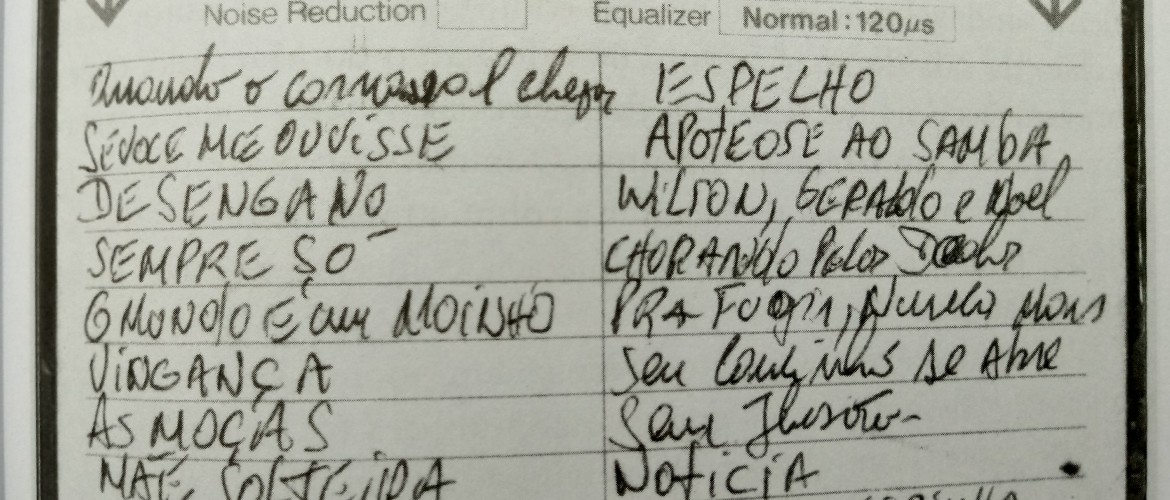 Noise Reduction Equalizer Normal:120µs
Quando o carnaval chegar ESPELHO
SE VOCE ME OUVISSE APOTEOSE AO SAMBA
DESENGANO WILSON, GERALDO e Noel
SEMPRE SÓ CHORANDO Pelos Dedos
O MUNDO É um MOINHO PRA FUGIR, Nunca Mais
VINGANÇA Seu Caminho se Abre
AS MOÇAS Sem Ilusão
MÃE SOLTEIRA NOTICIA